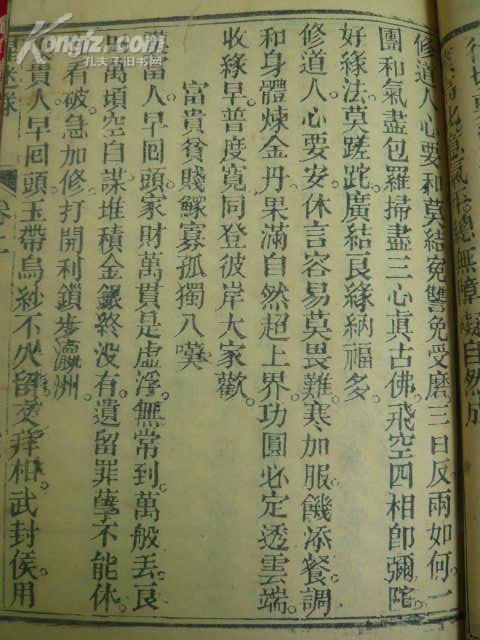 修道人心要和莫結寃讐免受磨三曰反兩如何一
團和氣盡包羅掃盡三心眞古佛飛空四相卽彌陀
好緣法莫蹉跎廣結良緣納福多
修道人心要安休言容易莫畏難寒加服饑添餐調
和身體煉金丹果滿自然超上界功圓必定透雲端
收緣早普度寬同登彼岸大家歡
富貴貧賤鰥寡孤獨八嘆
嘆富人早回頭家財萬貫是虛浮無常到萬般丟良
田萬頃空自謀堆積金銀終没有遺留罪孽不能休
看破急加修打開利鎖步瀛洲
貴人早回頭玉帶烏紗不久留文拜相武封侯用
卷二
總無障礙自然成
Kongfz.com
孔夫子旧书网